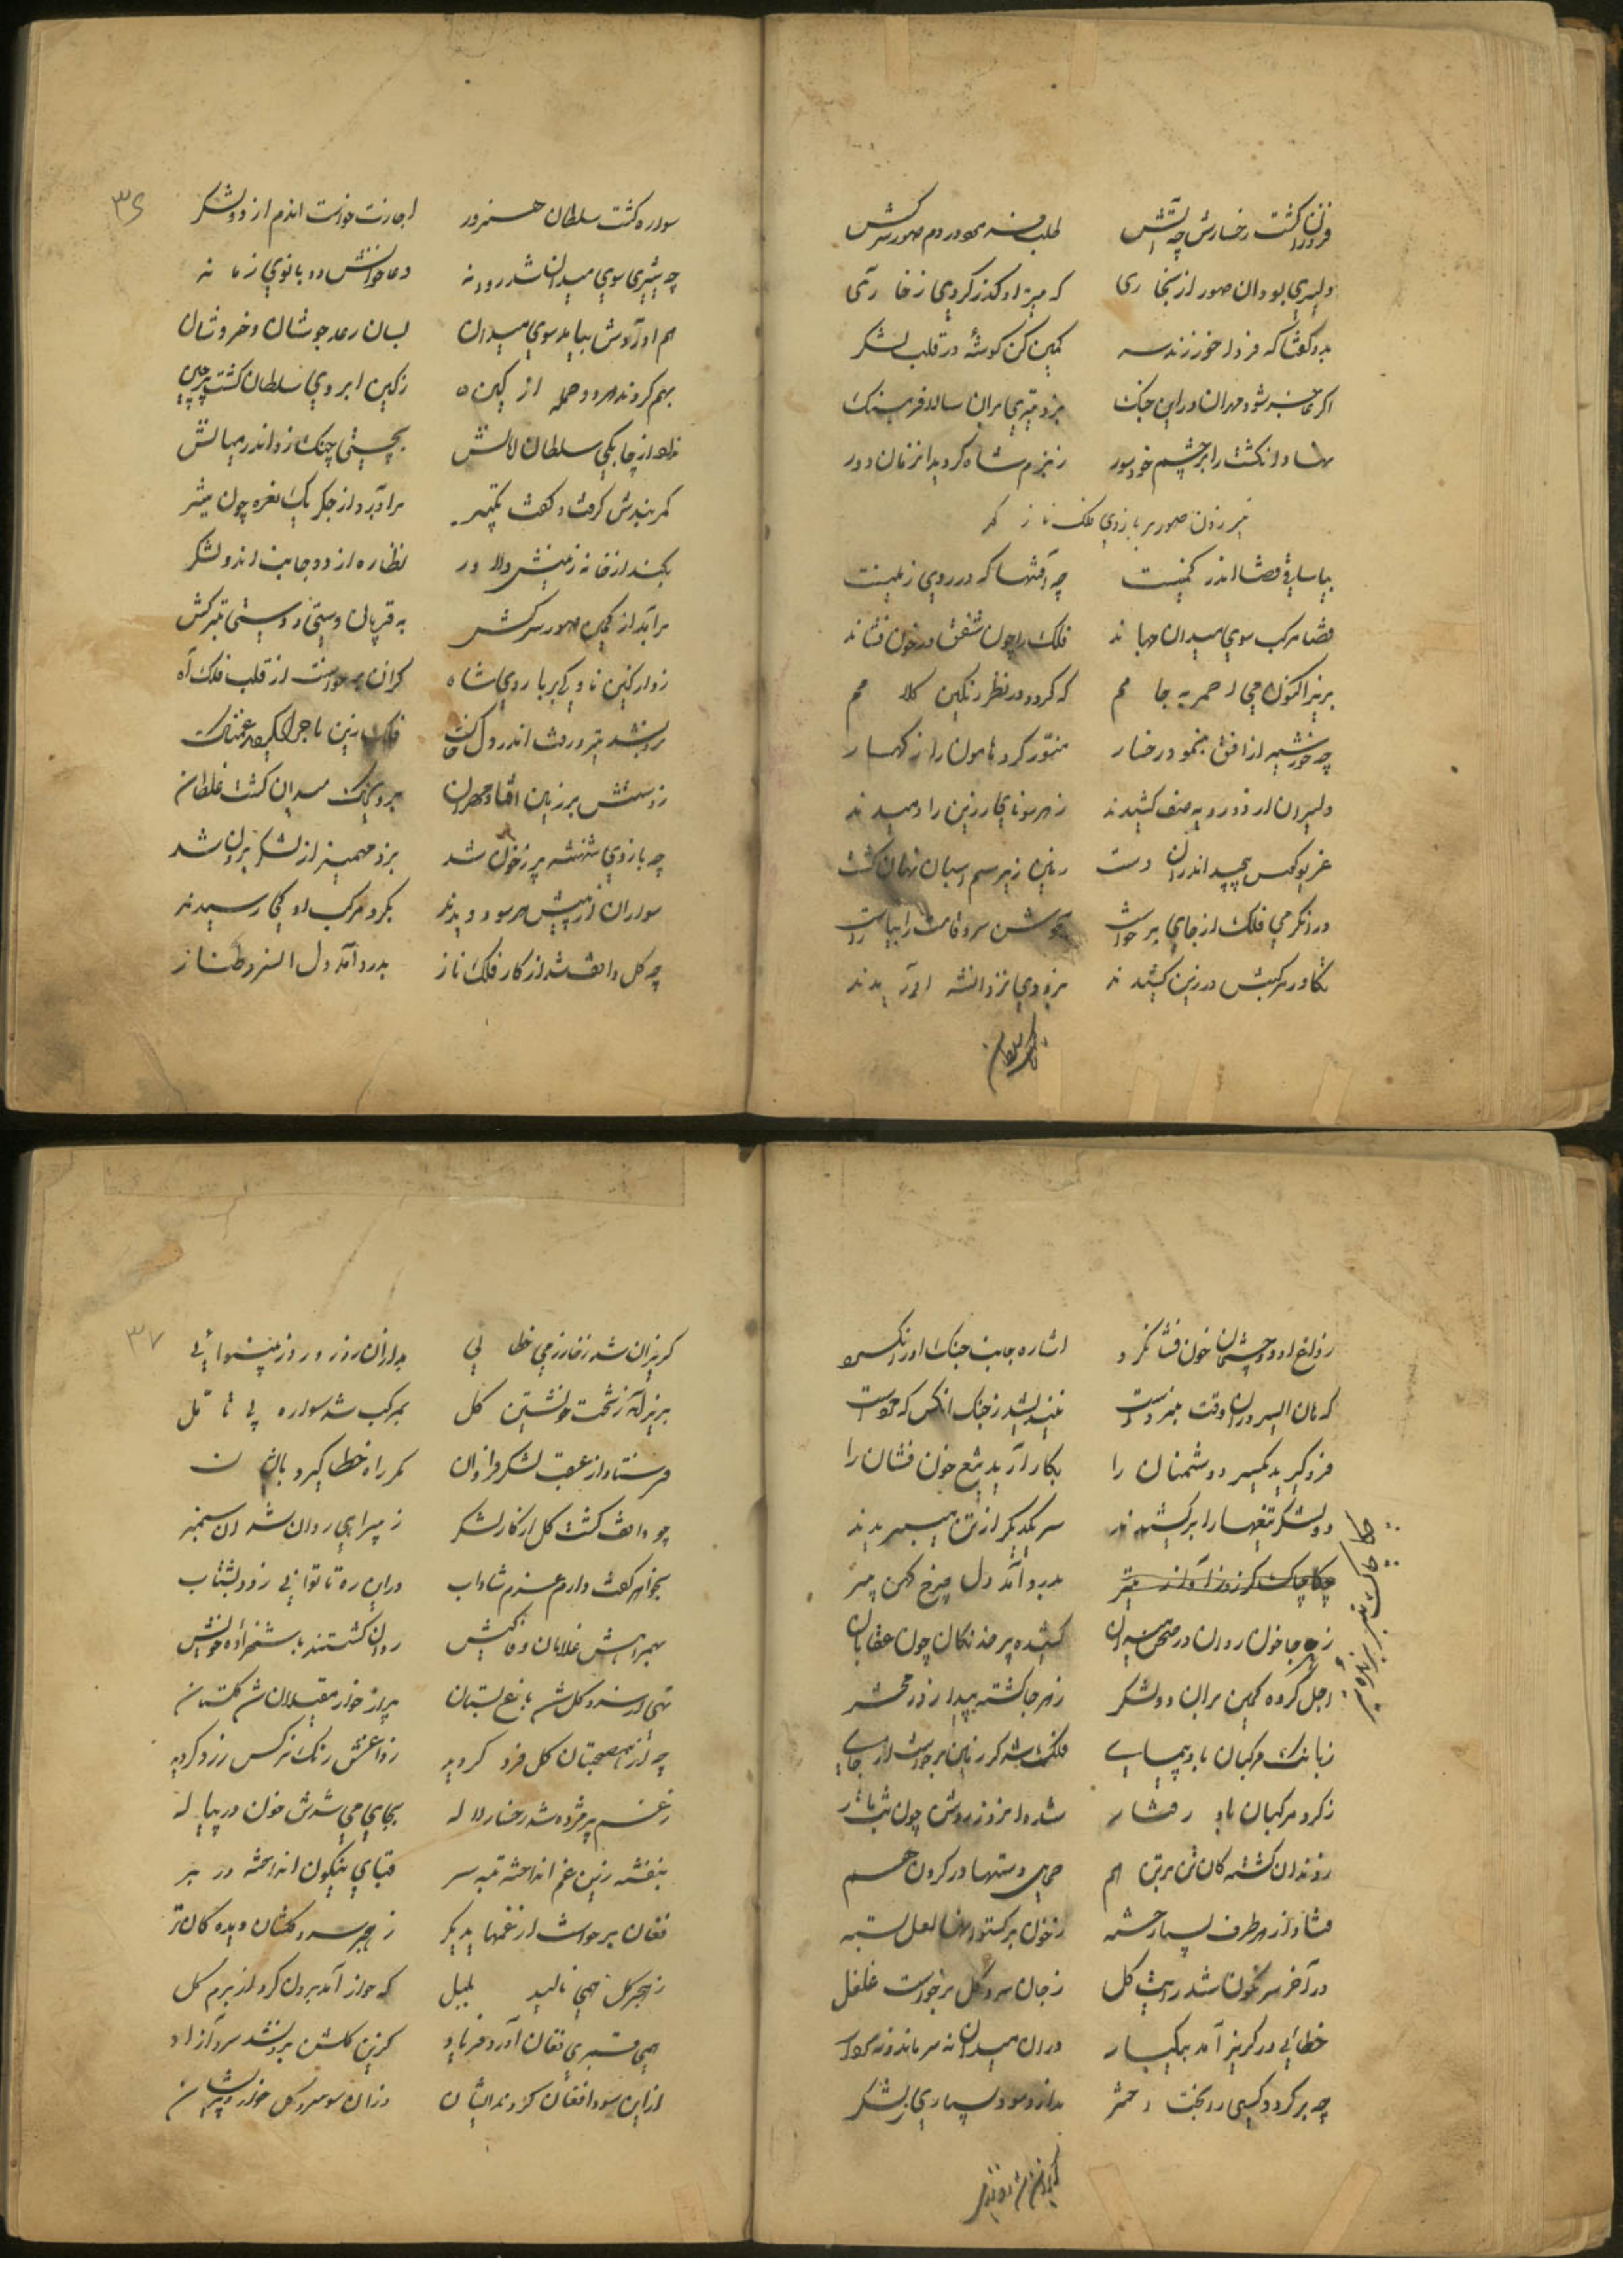 فروزان گشت رخسارش چه آتش طلب فرمود در دم صمور سرکش
دلیری بود آن صمور از بخاری که تیر او گذر کردی ز خاری
بدو گفتا که فردا خور زند سر کمین کن گوشهٔ در قلب لشکر
اگر عاجز شود مهران در این جنگ بزن تیری بران سالار فرهنگ
نهاد انگشت را بر چشم خود صور ز بزم شاه گردید انزمان دور
تیر زدن صمور بر بازوی ملک ناز گهر
بیا ساقی قضا اندر کمینست چه آفتها که در روی زمینست
قضا مرکب سوی میدان جهاند فلک را چون شفق در خون فشاند
بریز اکنون می احمر به جامم که گردد در نظر رنگین کلامم
چه خورشید از افق بنمود رخسار منور کرد هامون را ز کهسار
دلیران از دو رویه صف کشیدند ز هر سو نای زرین را دمیدند
غریو کوس پیچید اندران دشت زمین زیر سم اسبان نهان گشت
در انگرمی فلک از جای برخواست بجوشن سرو قامت را بیاراست
تکاور مرکبش در زین کشیدند بزودی نزد انشه آوریدند
سواره گشت سلطان هنرور اجازت خواست اندم از دو لشکر
چه شیری سوی میدان شد روانه دعا خواندش دو بانوی زمانه
هم آوردش بیامد سوی میدان بسان رعد جوشان و خروشان
بهم کردند هر دو حمله از کین ز کین ابروی سلطان گشت پرچین
ز چابکی سلطان بچستی چنگ زد اندر میانش
کمربندش گرفت و گفت تکبیر برآورد از جگر یک نعره چون شیر
بکند از خانه زینش دلاور نظاره از دو جانب اندو لشکر
برآمد از کمین صمور سرکش به قربان دستی زد دستی به ترکش
زد از کین ناوکی بر بازوی شاه کزان برخواست از قلب فلک آه
فلک زین ماجرا گردید غمناک
ز دستش بر زمین افتاد مهران بروی خاک میدان گشت غلطان
چه بازوی شهنشه پر ز خون شد بزد مهمیز از لشکر برون شد
سواران از پیش هر سو دویدند بگرد مرکب او کی رسیدند
چه گل واقف شد از کار فلک ناز بدرد آمد دل السرو طناز
۳۶
ز داغ او دو چشمان خون فشان کرد اشاره جانب جنگ آوران کرد
که هان ای سروران وقت نبردست نیندیشد ز جنگ انکس که مردست
فرو گیرید یکسر دشمنان را بکار آرید تیغ خون فشان را
دو لشکر تیغها را برکشیدند سر یکدیگر از تن می‌بریدند
چکاچاک بدرد آمد دل چرخ کهن پیر
ز هر جا خون روان در صحن میدان کشیده پر خدنگان چون عقابان
اجل کرده کمین بران دو لشکر ز هر جا گشته پیدا روز محشر
ز بانگ مرکبان باد پیمای فلک شد کر زمین برخواست از جای
ز گرد مرکبان باد رفتار شده امروز روشن چون شب تار
ز خون
در آخر سرنگون شد رایت گل ز جان سرو گل برخواست غلغل
خطائی در گریز آمد بیکبار دران میدان نه سر ماند و نه سردار
چه برگردد کسی را بخت و اختر ندارد سود بسیاری لشکر
گریزان شد ز خارزمی خطائی بداد از روز و روز بینوائی
بزیر آمد ز تخت خویشتن گل بمرکب شد سواره بی تأمل
فرستاد از عقب لشکر فراوان کمر راه خطا گیرد بآنان
چو واقف گشت گل از کار لشکر ز همراهی روان شد ان سمنبر
بخواهر گفت دارم عزم شاداب در این ره تا توانی زود بشتاب
بهمراهش غلامان وفاکیش روان گشتند با شهزاده خویش
تهی از سرو و گل شد باغ بستان پر از خار مغیلان شد گلستان
چه از هم‌صحبتان گل فرد گردید ز داغش رنگ نرگس زرد گردید
ز غم پژمرده شد رخسار لاله بجای می شدش خون در پیاله
بنفشه زین غم انداخته ته سر قبای نیلگون انداخته در بر
فغان برخواست از غمها بدیگر ز هجر سرو گلشان دیده گان تر
ز هجر گل همی نالید بلبل که خار آمد برون کرد از برم گل
همی قمری فغان آورد و فریاد کزین گلشن برون شد سرو آزاد
از این سودا فغان کردند ایشان وزان سو سرو گل خوار و پریشان
۳۷